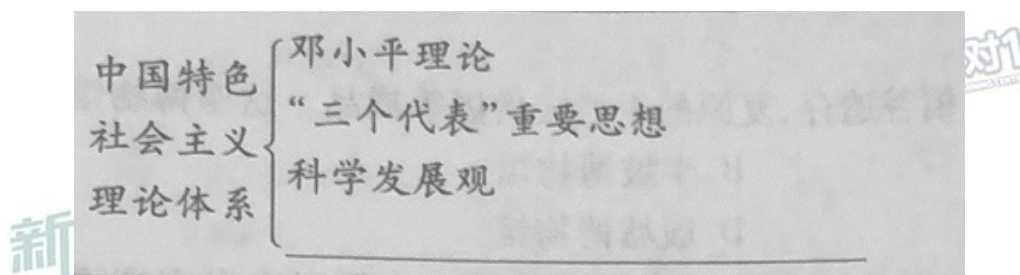 中国特色
社会主义
理论体系
邓小平理论
“三个代表”重要思想
科学发展观
新
对1